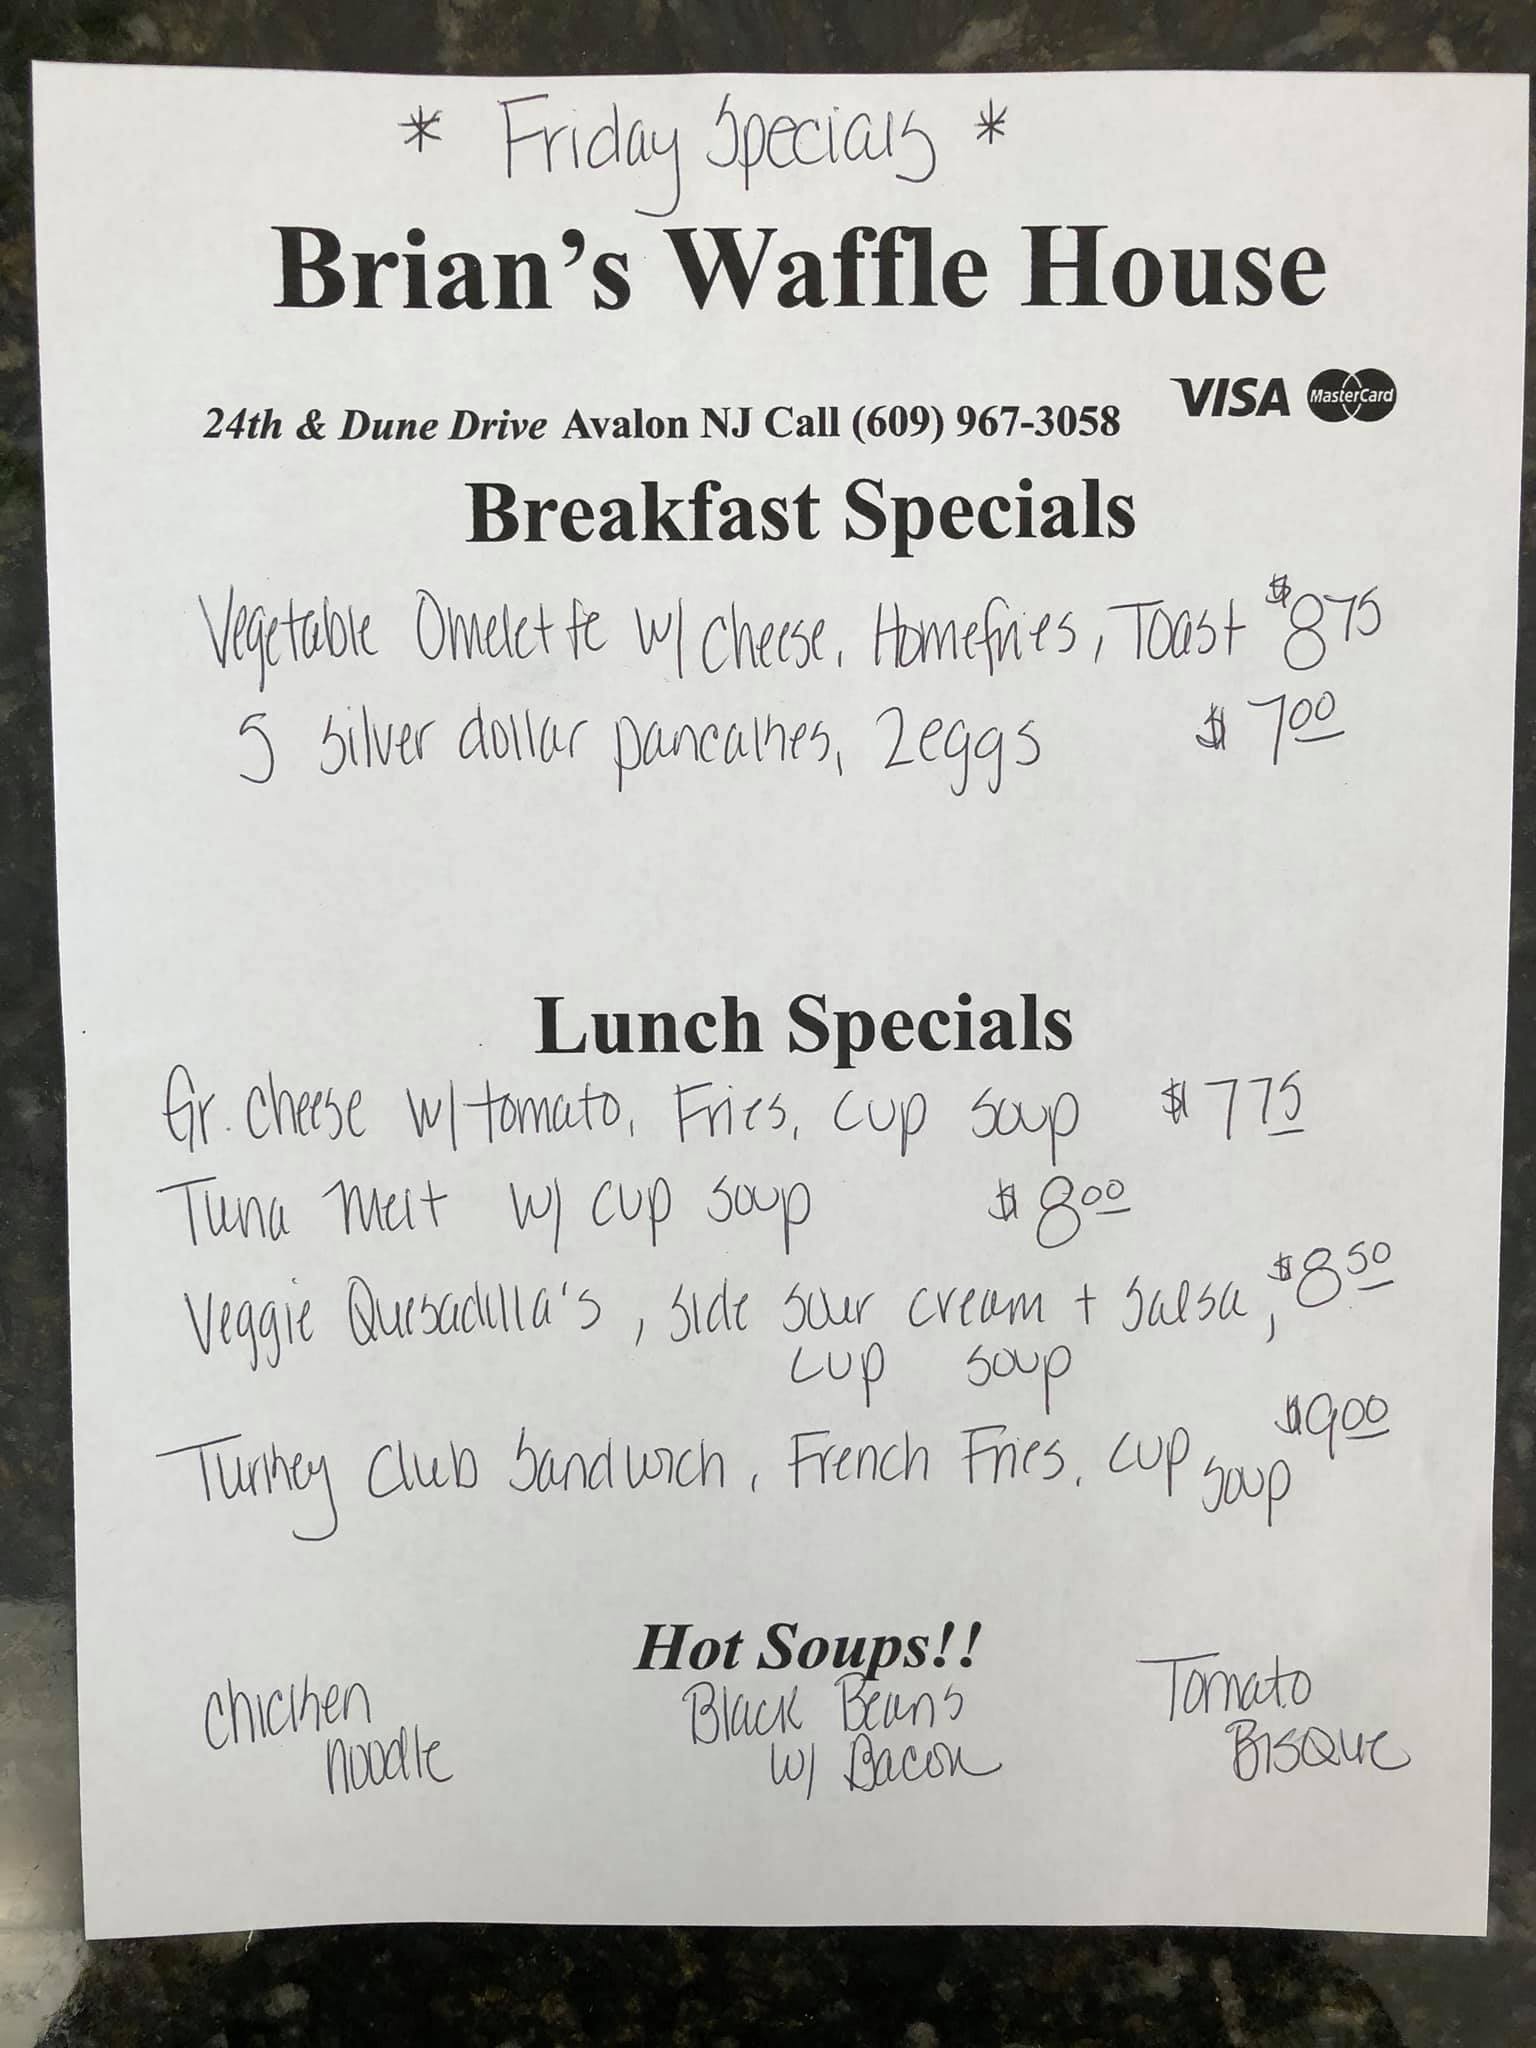 * Friday Specials *
Brian's Waffle House
VISA MasterCard
24th & Dune Drive Avalon NJ Call (609) 967-3058
Breakfast Specials
Vegetable Omelette w/ cheese, Homefries, Toast $8 75
5 silver dollar pancakes, 2 eggs $7 00
Lunch Specials
Gr. cheese w/ tomato, Fries, cup soup $7 75
Tuna Melt w/ cup soup $8 00
Veggie Quesadilla's, side sour cream + salsa, $8 50
cup soup
Turkey Club Sandwich, French Fries, cup soup $9 00
Hot Soups!!
Chicken Noodle
Black Beans w/ Bacon
Tomato Bisque